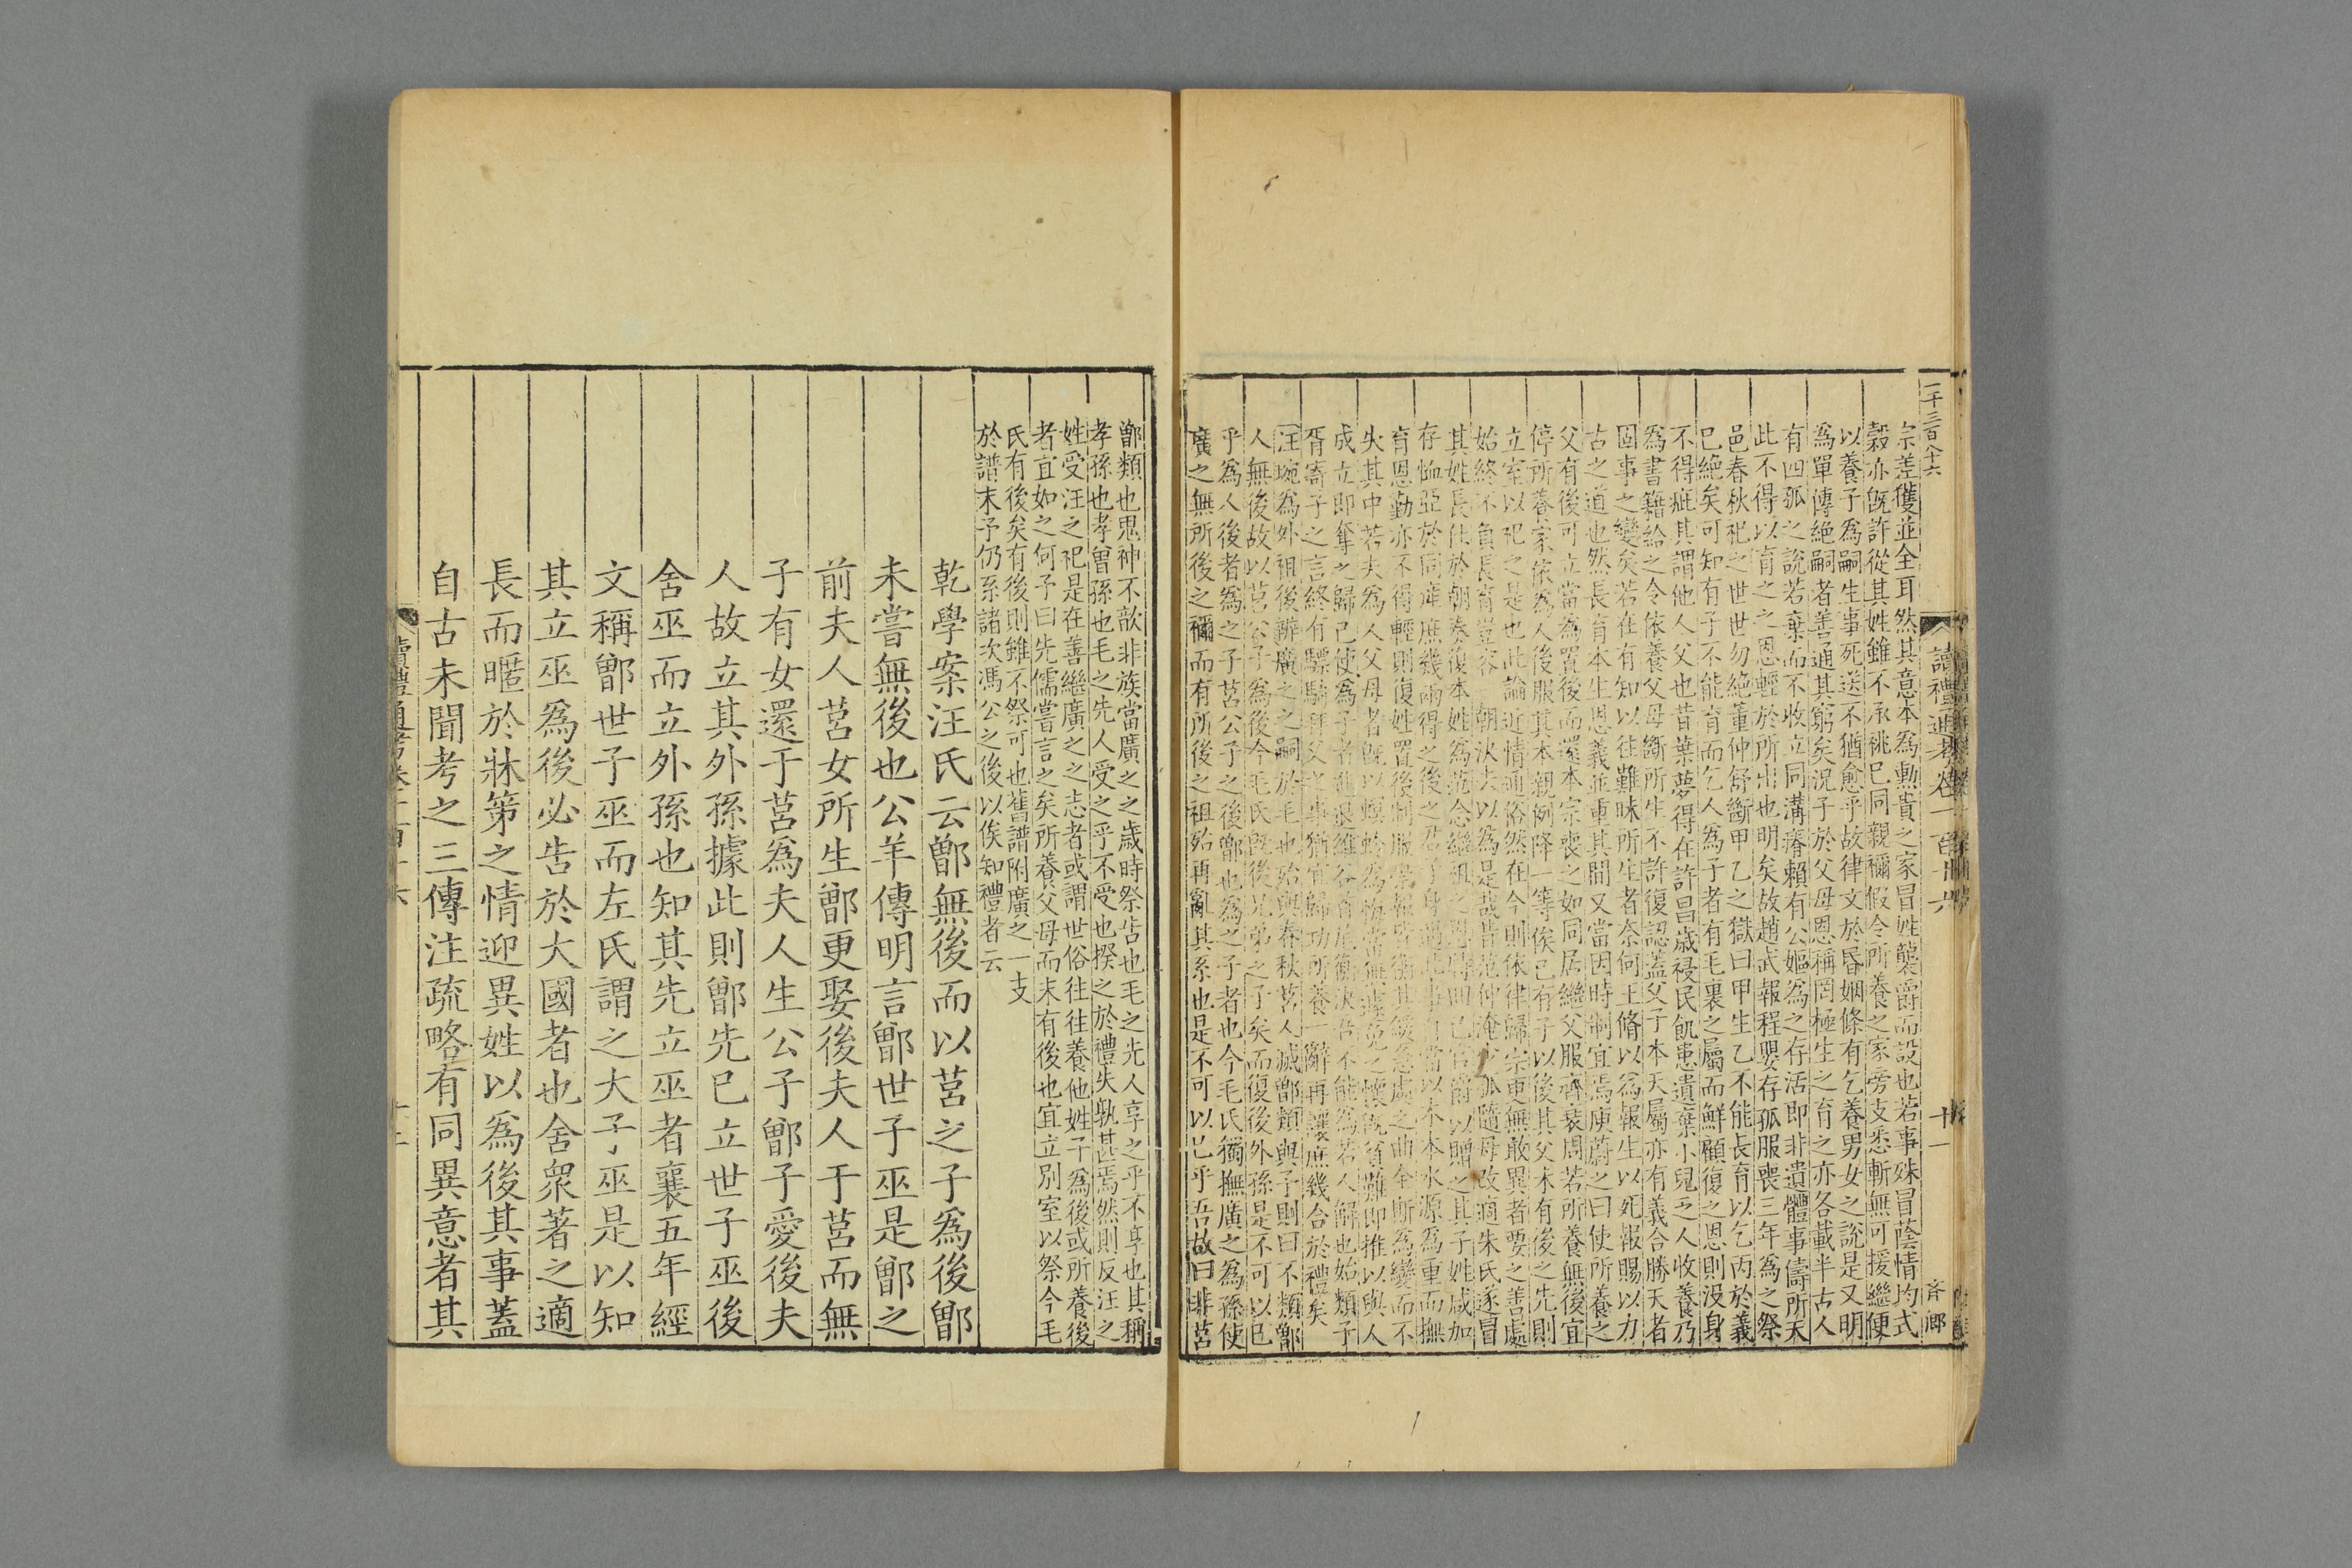 二千三百八十六
讀禮通考卷一百十六
十一
宗差獲並全耳然其意本爲勳貴之家冒姓襲爵而設也若事殊冒蔭情均式
穀亦旣許從其姓雖不承祧已同親禰假令所養之家旁支悉斬無可援繼便
以養子爲嗣生事死送不猶愈乎故律文於昏姻條有乞養男女之說是又明
爲單傳絕嗣者善通其窮矣況子於父母恩稱罔極生之育之亦各載半古人
有四孤之說若棄而不收立同溝瘠賴有公嫗爲之存活即非遺體事儔所天
此不得以育之之恩輕於所出也明矣故趙武報程嬰存孤服喪三年爲之祭
邑春秋祀之世世勿絕董仲舒斷甲乙之獄曰甲生乙不能長育以乞丙於義
已絕矣可知有子不能育而乞人爲子者有毛裏之屬而鮮顧復之恩則没身
不得疵其謂他人父也昔葉夢得在許昌歲祲民飢患遺棄小兒乏人收養乃
爲書籍給之令依養父母斷所生不許復認蓋父子本天屬亦有義合勝天者
固事之變矣若在有知以往難昧所生者奈何王脩以爲報生以死報賜以力
古之道也然長育本生恩義並重其間又當因時制宜焉庾蔚之曰使所養之
父有後可立當爲置後而還本宗喪之如同居繼父服齊衰周若所養無後宜
停所養家依爲人後服其本親例降一等俟已有子以後其父未有後之先則
立室以祀之是也此論近情通俗然在今則依律歸宗更無敢異者要之善處
始終不負長育豈容 朝決去以爲是哉昔范仲淹少孤隨母改適朱氏遂冒
其姓長仕於朝奏復本姓爲范念繼祖之恩 以贈之其子姓咸加
存恤亞於同產庶幾兩得之後之君子 以不本水源爲重而撫
育恩勤亦不得輕則復姓置後制服 其緩急處之曲全斯爲變而不
失其中若夫爲人父母者旣以螟蛉爲 之懷旣貧難即推以與人
成立即奪之歸已使爲子者進退維谷 不能爲若人解也始類子
胥寄子之言終有驃騎拜父之事猶宜歸功所養一辭再讓庶幾合於禮矣
汪琬爲外祖後辭廣之之嗣於毛也殆與春秋莒人滅鄫類與予則曰不類鄫
人無後故以莒公子爲後今毛氏旣後兄弟之子矣而復後外孫是不可以已
乎爲人後者爲之子莒公子之後鄫也爲之子者也今毛氏獨撫廣之爲孫使
廣之無所後之禰而有所後之祖殆再亂其系也是不可以已乎吾故曰非莒
鄫類也鬼神不歆非族當廣之之歲時祭告也毛之先人享之乎不享也其稱
孝孫也孝曾孫也毛之先人受之乎不受也揆之於禮失孰甚焉然則反汪之
姓受汪之祀是在善繼廣之之志者或謂世俗往往養他姓子爲後或所養後
者宜如之何予曰先儒嘗言之矣所養父母而未有後也宜立別室以祭今毛
氏有後矣有後則雖不祭可也舊譜附廣之一支
於譜末予仍系諸次馮公之後以俟知禮者云
乾學案汪氏云鄫無後而以莒之子爲後鄫
未嘗無後也公羊傳明言鄫世子巫是鄫之
前夫人莒女所生鄫更娶後夫人于莒而無
子有女還于莒爲夫人生公子鄫子愛後夫
人故立其外孫據此則鄫先已立世子巫後
舍巫而立外孫也知其先立巫者襄五年經
文稱鄫世子巫而左氏謂之大子巫是以知
其立巫爲後必告於大國者也舍衆著之適
長而暱於牀第之情迎異姓以爲後其事蓋
自古未聞考之三傳注疏略有同異意者其
讀禮通考卷一百十六